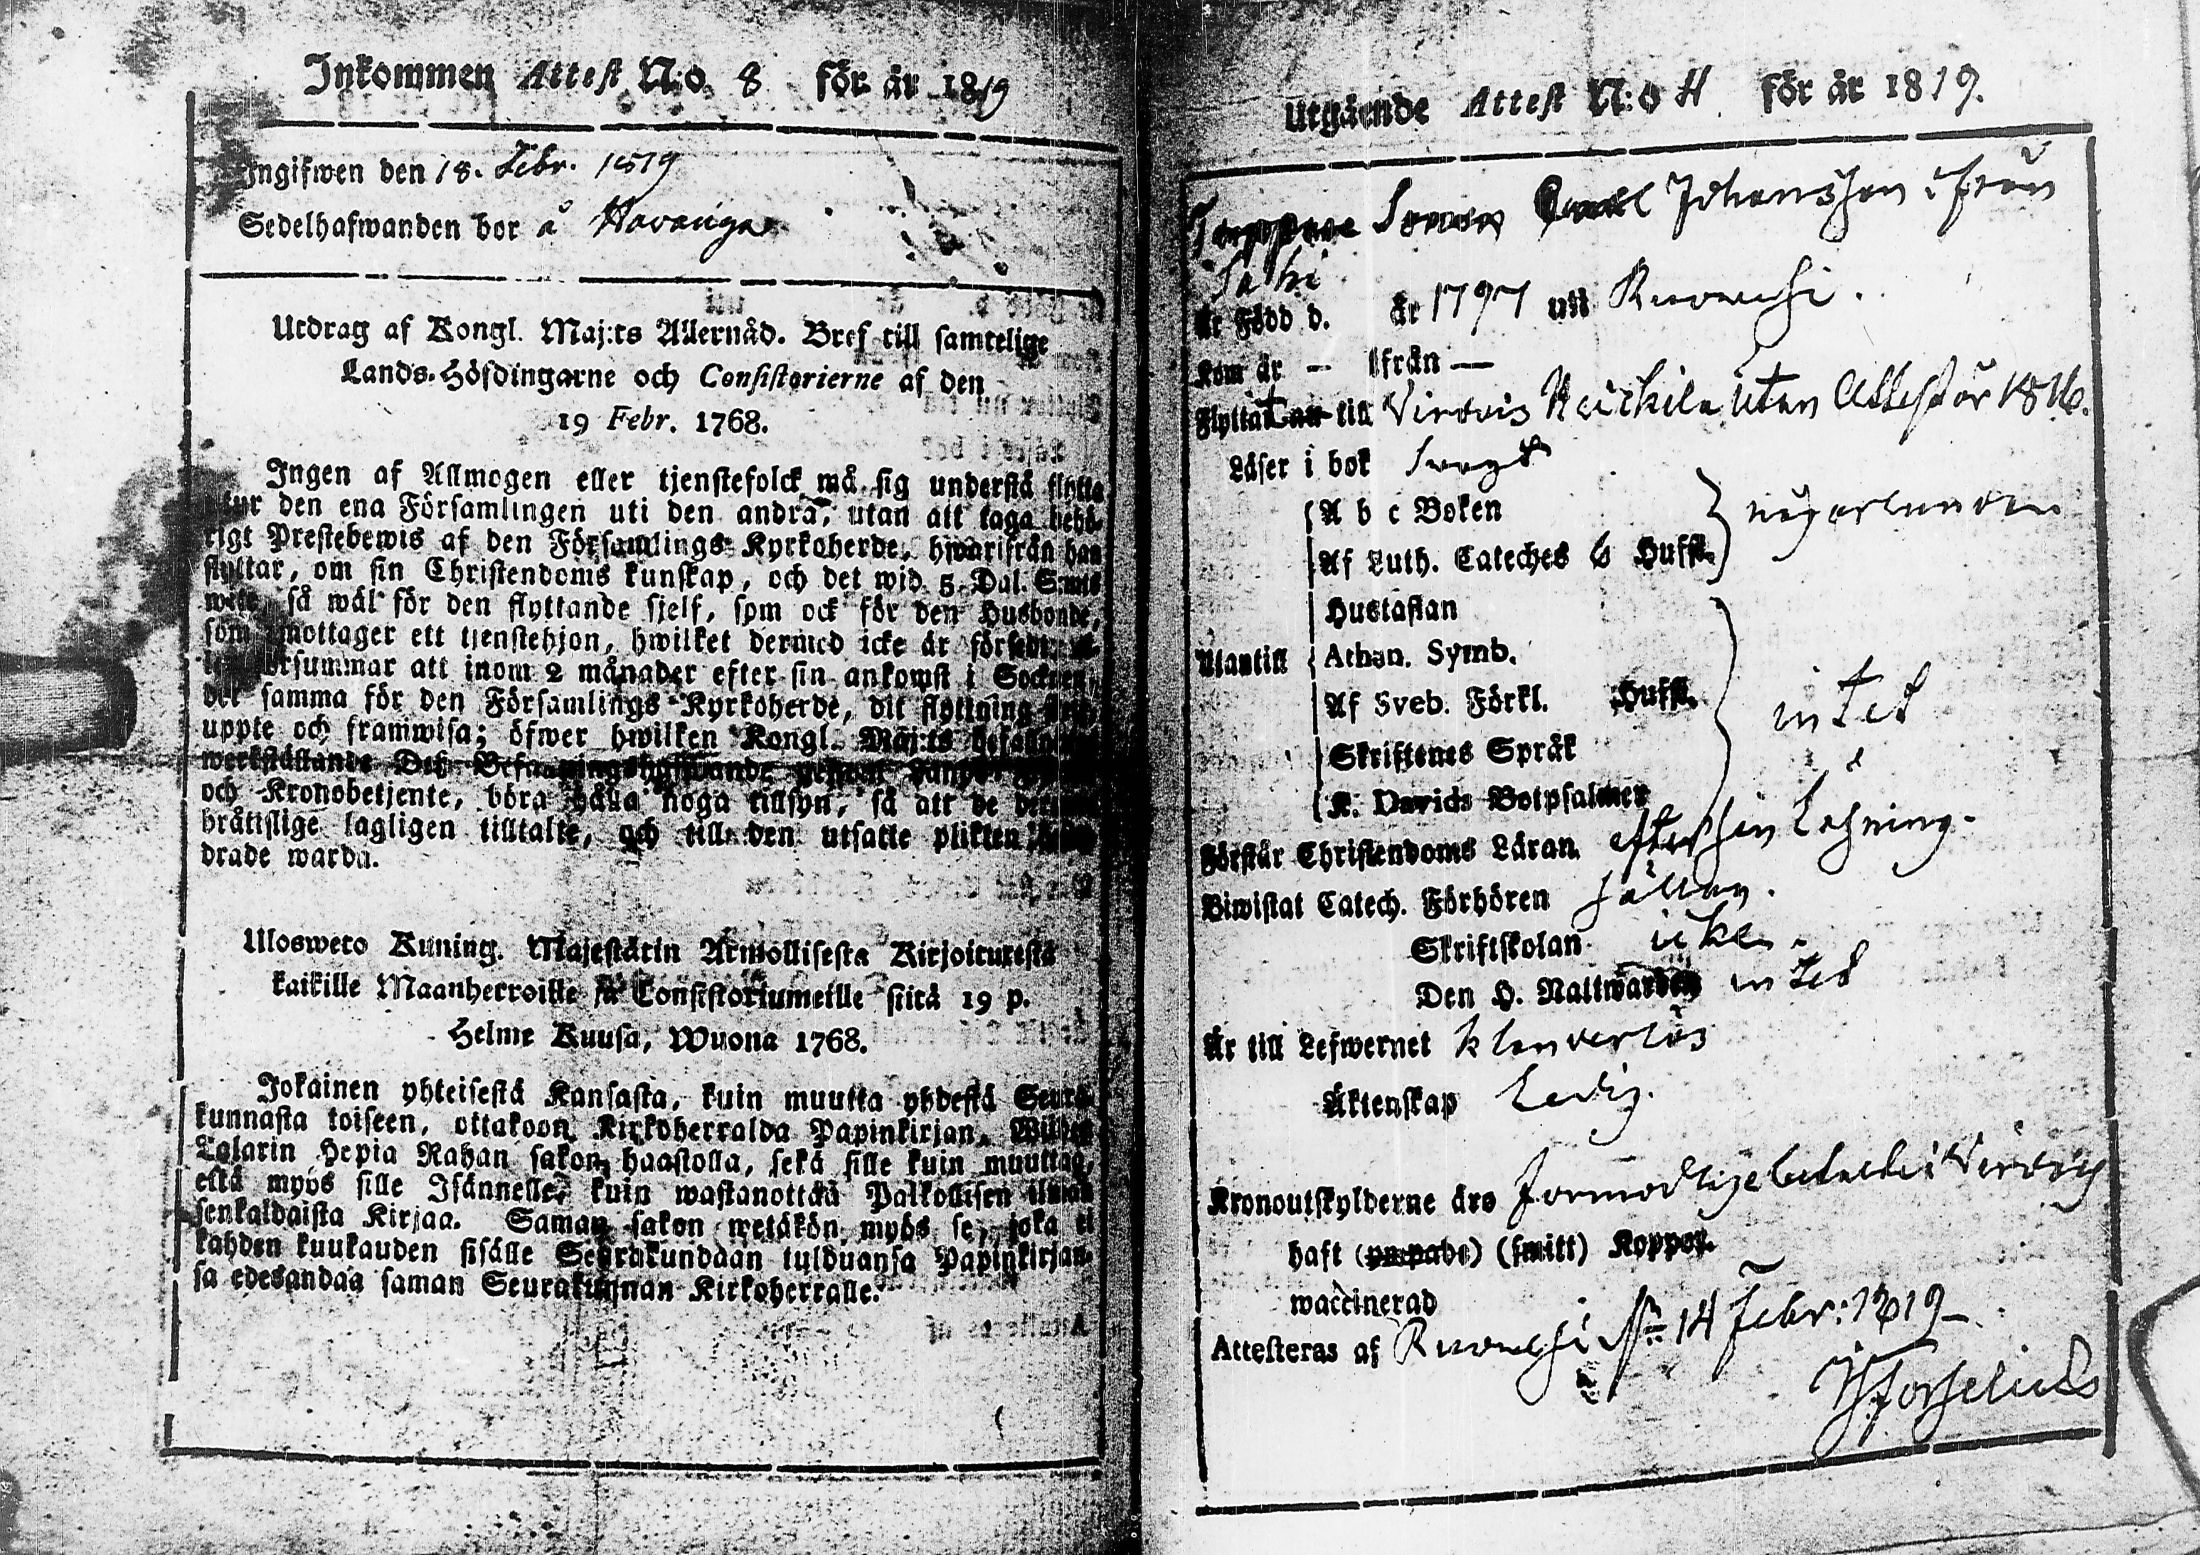 Inkommen Attest N:o 8 för år 1819
Ingifwen den 18. Febr. 1819
Sedelhafwanden bor å
Utdrag af Kongl. Maj:ts Allernåd. Bref till samtelige
Lands-Höfdingarne och Consistorierne af den
19 Febr. 1768.
Ingen af Allmogen eller tjenstefolck må sig understå flytta
utur den ena Församlingen uti den andra, utan att taga behö-
rigt Prestebewis af den Församlings Kyrkoherde, hwarifrån han
flyttar, om sin Christendoms kunskap, och det wid 5 Dal. S:mts
wite, så wäl för den flyttande sjelf, som ock för den Husbonde,
som emottager ett tjenstehjon, hwilket dermed icke är
försummar att inom 2 månader efter sin ankomst i Socknen,
det samma för den Församlings Kyrkoherde, dit flyttning
uppte och framwisa; öfwer hwilken Kongl. Maj:ts befallning
werkställande Dess Befallningshafwande
och Kronobetjente, böra hålla noga tillsyn, så att de
brätslige lagligen tilltalte, och till den utsatte plikten
drade warda.
Ulosweto Kuning. Majestätin Armollisesta Kirjoituxesta
kaikille Maanherroille ja Consistoriumeille siitä 19 p.
Helme Kuusa, Wuona 1768.
Jokainen yhteisestä Kansasta, kuin muutta yhdestä Seura-
kunnasta toiseen, ottakoon Kirkoherralda Papinkirjan, Wiiden
Talarin Hopia Rahan sakon haastolla, sekä sille kuin muuttaa,
että myös sille Isännelle, kuin wastanottaa Palkollisen ilman
senkaldaista Kirjaa. Saman sakon wetäkön myös se, joka ei
kahden kuukauden sisälle Seurakundaan tulduansa Papinkirjan-
sa edesandaa saman Seurakunnan Kirkoherralle.
Utgående Attest N:o 4 för år 1819.
Sonen Johansson ifrån
År Född d. år 1797 uti Ruovesi.
Kom år — ifrån —
Flyttat till Virdois Heickilä utan Attest år 1816.
Läser i bok svagt
A b c Boken
någorlunda
Af Luth. Cateches 6 Hufst.
Hustaflan
Utantill
Athan. Symb.
Af Sveb. Förkl. Hufst.
intet
Skriftenes Språk
K. Davids Botpsalmer
Förstår Christendoms Läran efter sin Läsning.
Biwistat Catech. Förhören sällan.
Skriftskolan icke.
Den H. Nattwarden intet
Är till Lefwernet klanderlös
Äktenskap Ledig.
Kronoutskylderne äro förmodligen betalte i Virdois
haft (ympade) (smitt) Koppor.
waccinerad
Attesteras af Ruovesi 14 Febr: 1819